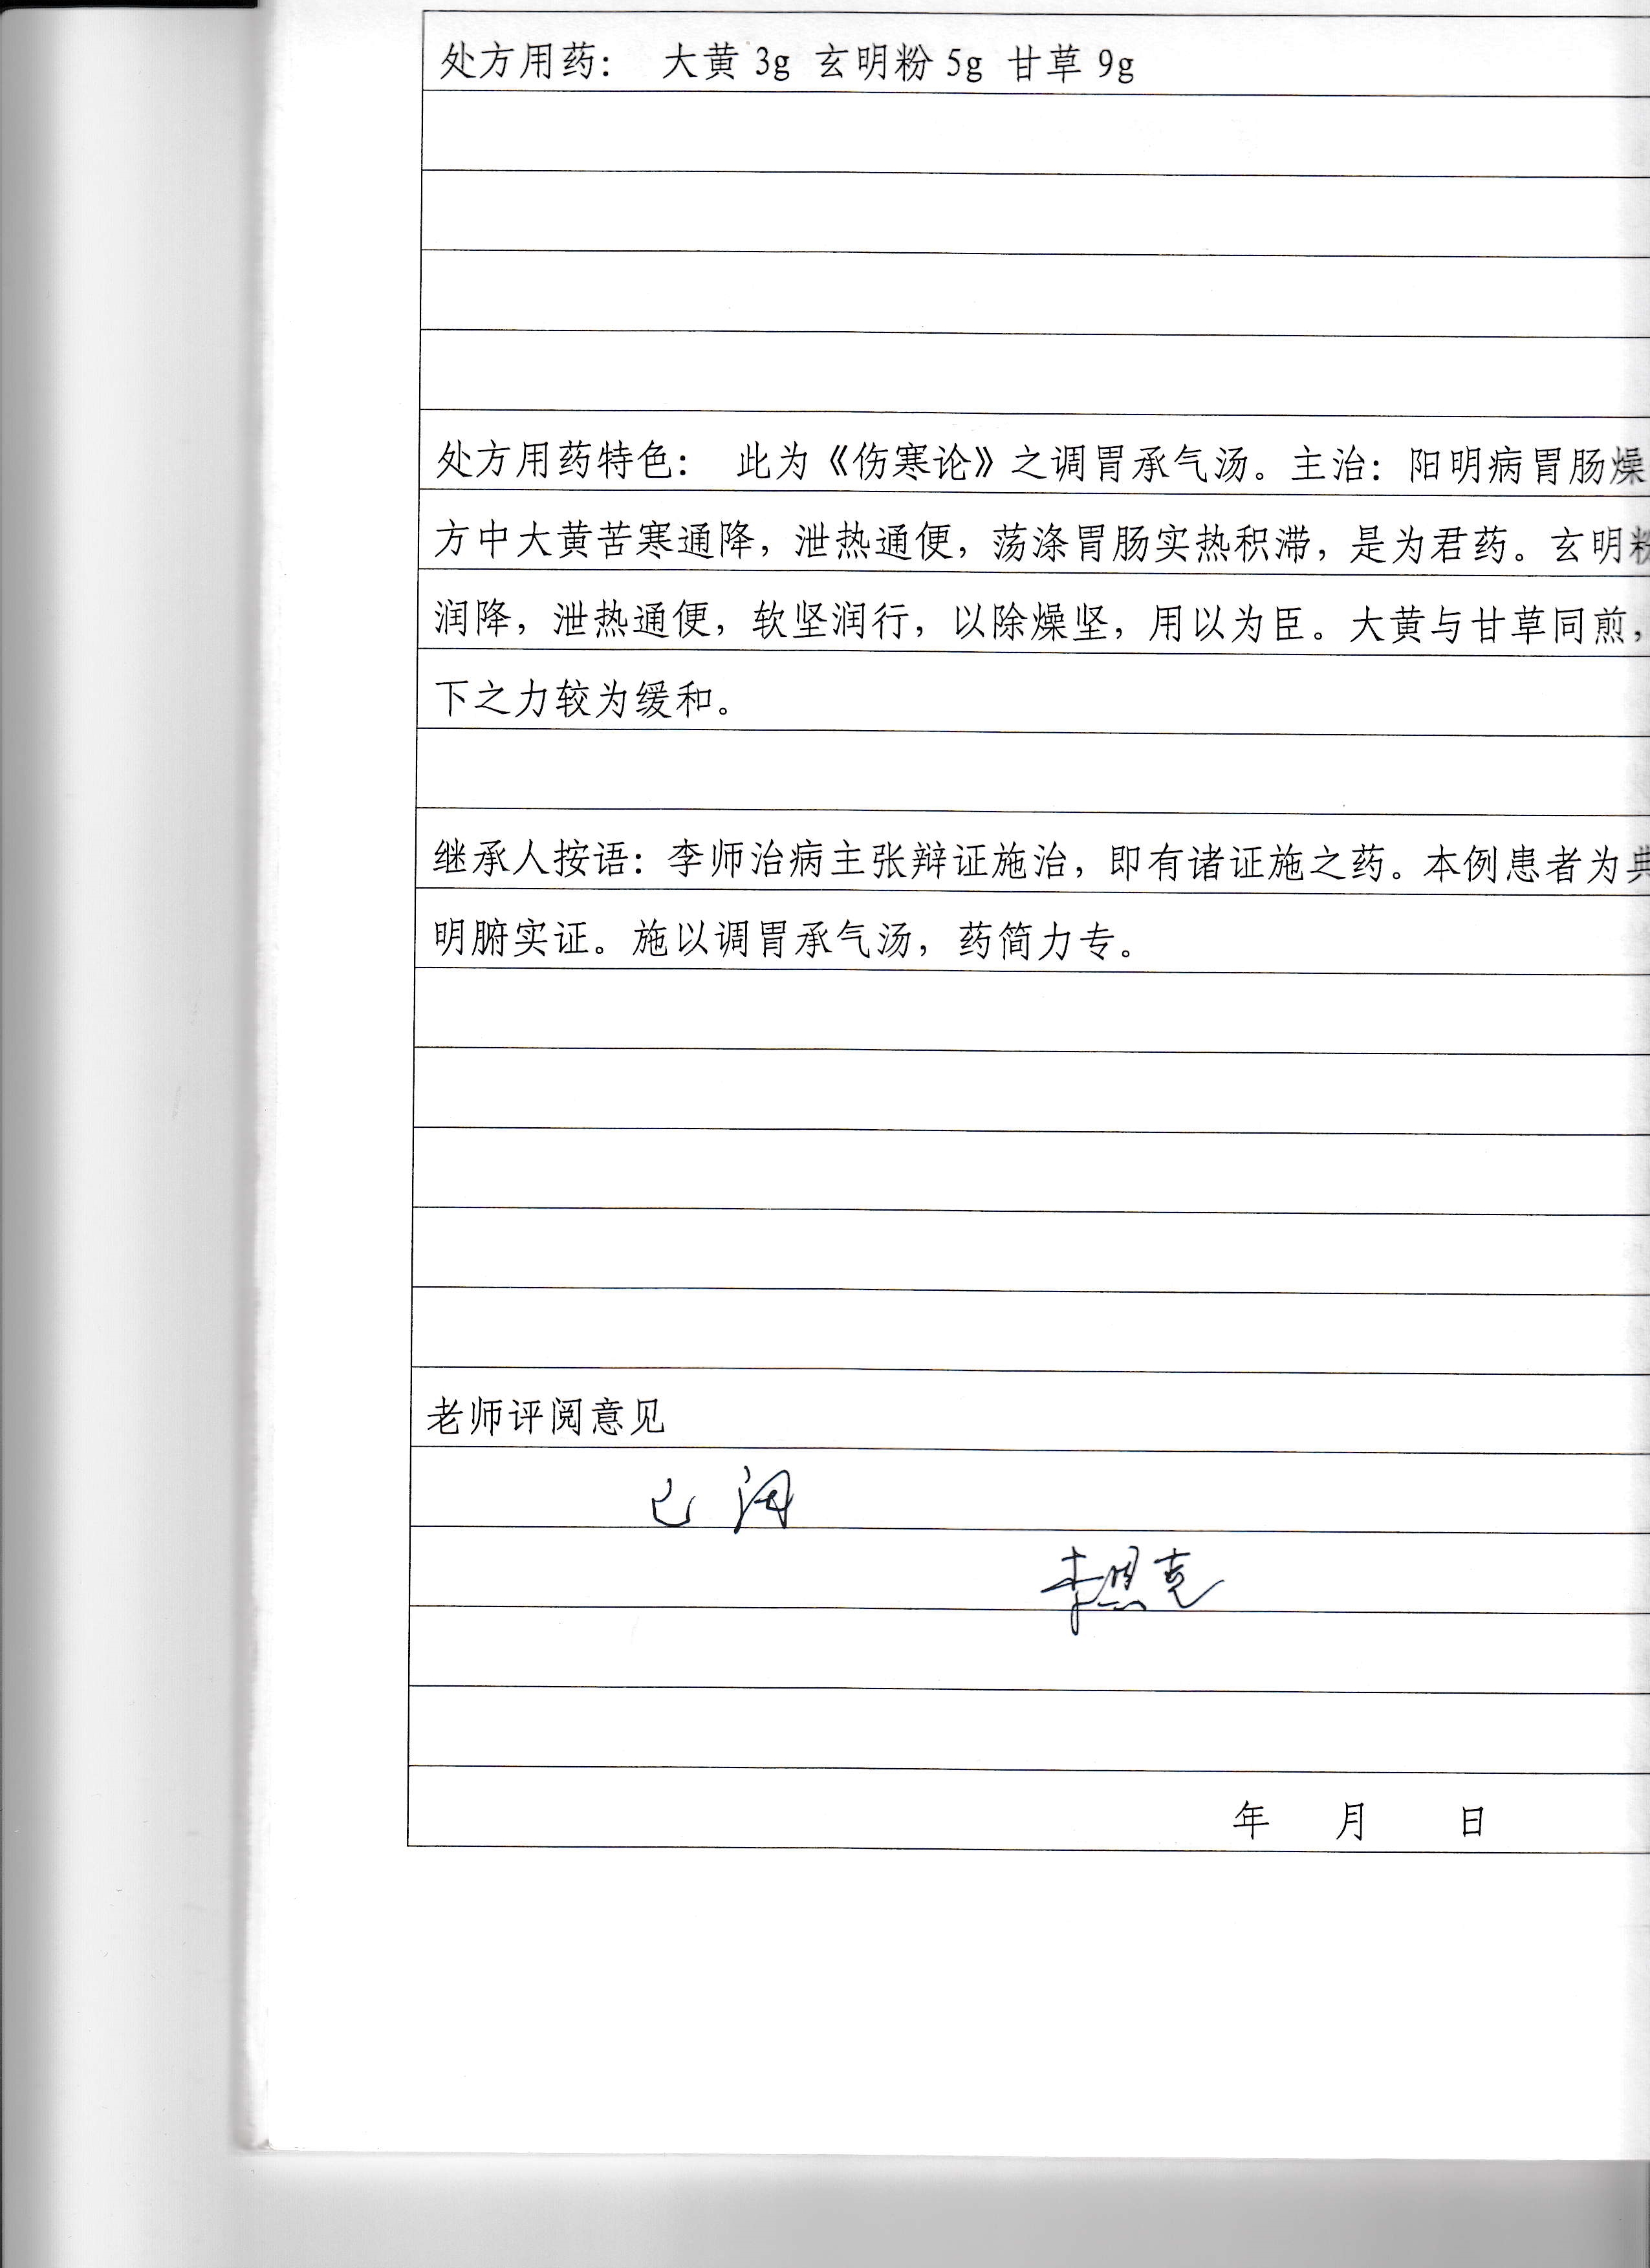 处方用药： 大黄 3g 玄明粉 5g 甘草 9g
处方用药特色： 此为《伤寒论》之调胃承气汤。主治：阳明病胃肠燥
方中大黄苦寒通降，泄热通便，荡涤胃肠实热积滞，是为君药。玄明粉
润降，泄热通便，软坚润行，以除燥坚，用以为臣。大黄与甘草同煎，
下之力较为缓和。
继承人按语：李师治病主张辩证施治，即有诸证施之药。本例患者为典
明腑实证。施以调胃承气汤，药简力专。
老师评阅意见
已阅
年 月 日